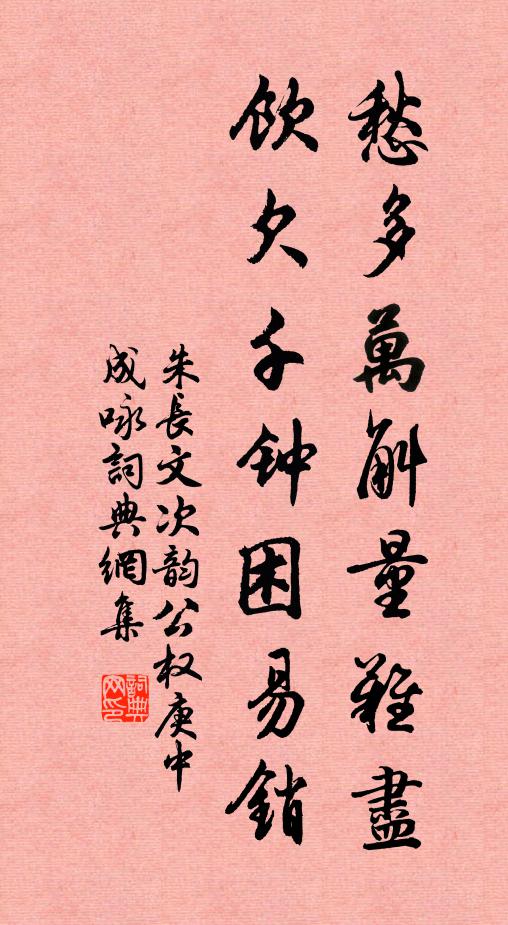 愁多萬斛量難盡
飲欠千钟困易銷
朱長文次韵公权庚中
成咏詞典網集
詞典
网印